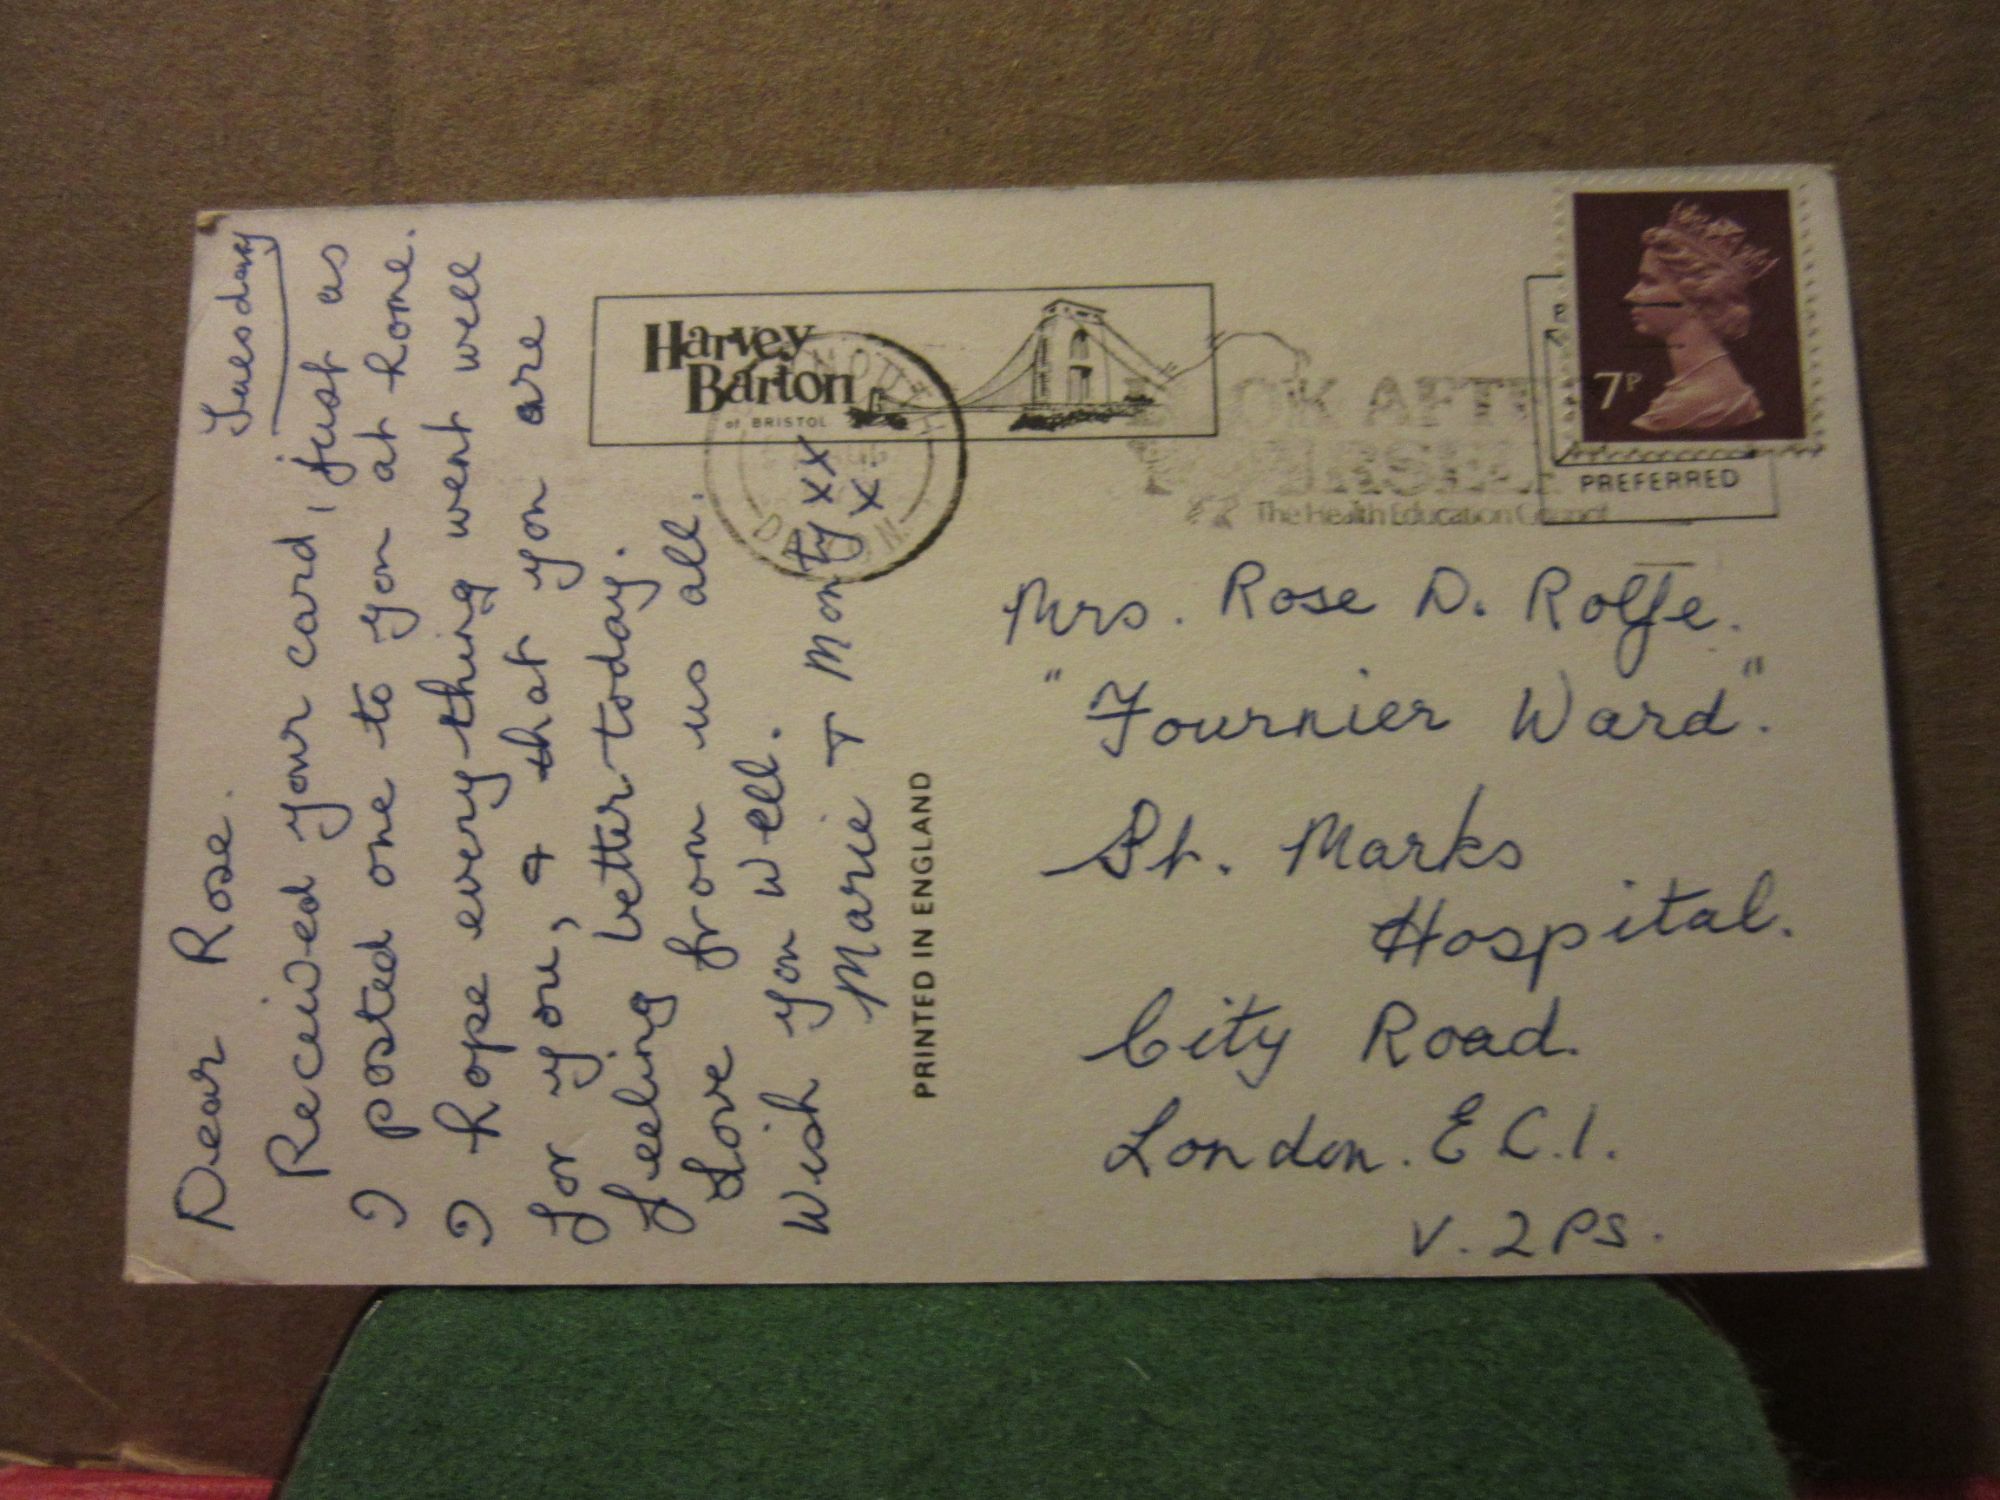 Tuesday
Dear Rose.
Received your card, just as
I posted one to you at home.
I hope every-thing went well
for you, & that you are
feeling better today.
Love from us all.
Wish you well.
Marie & Monty xxx
Harvey
Barton
of BRISTOL
PRINTED IN ENGLAND
7P
PREFERRED
The Health Education Council
Mrs. Rose D. Rolfe.
"Fournier Ward".
St. Marks
Hospital.
City Road.
London. E C.1.
V. 2 PS.